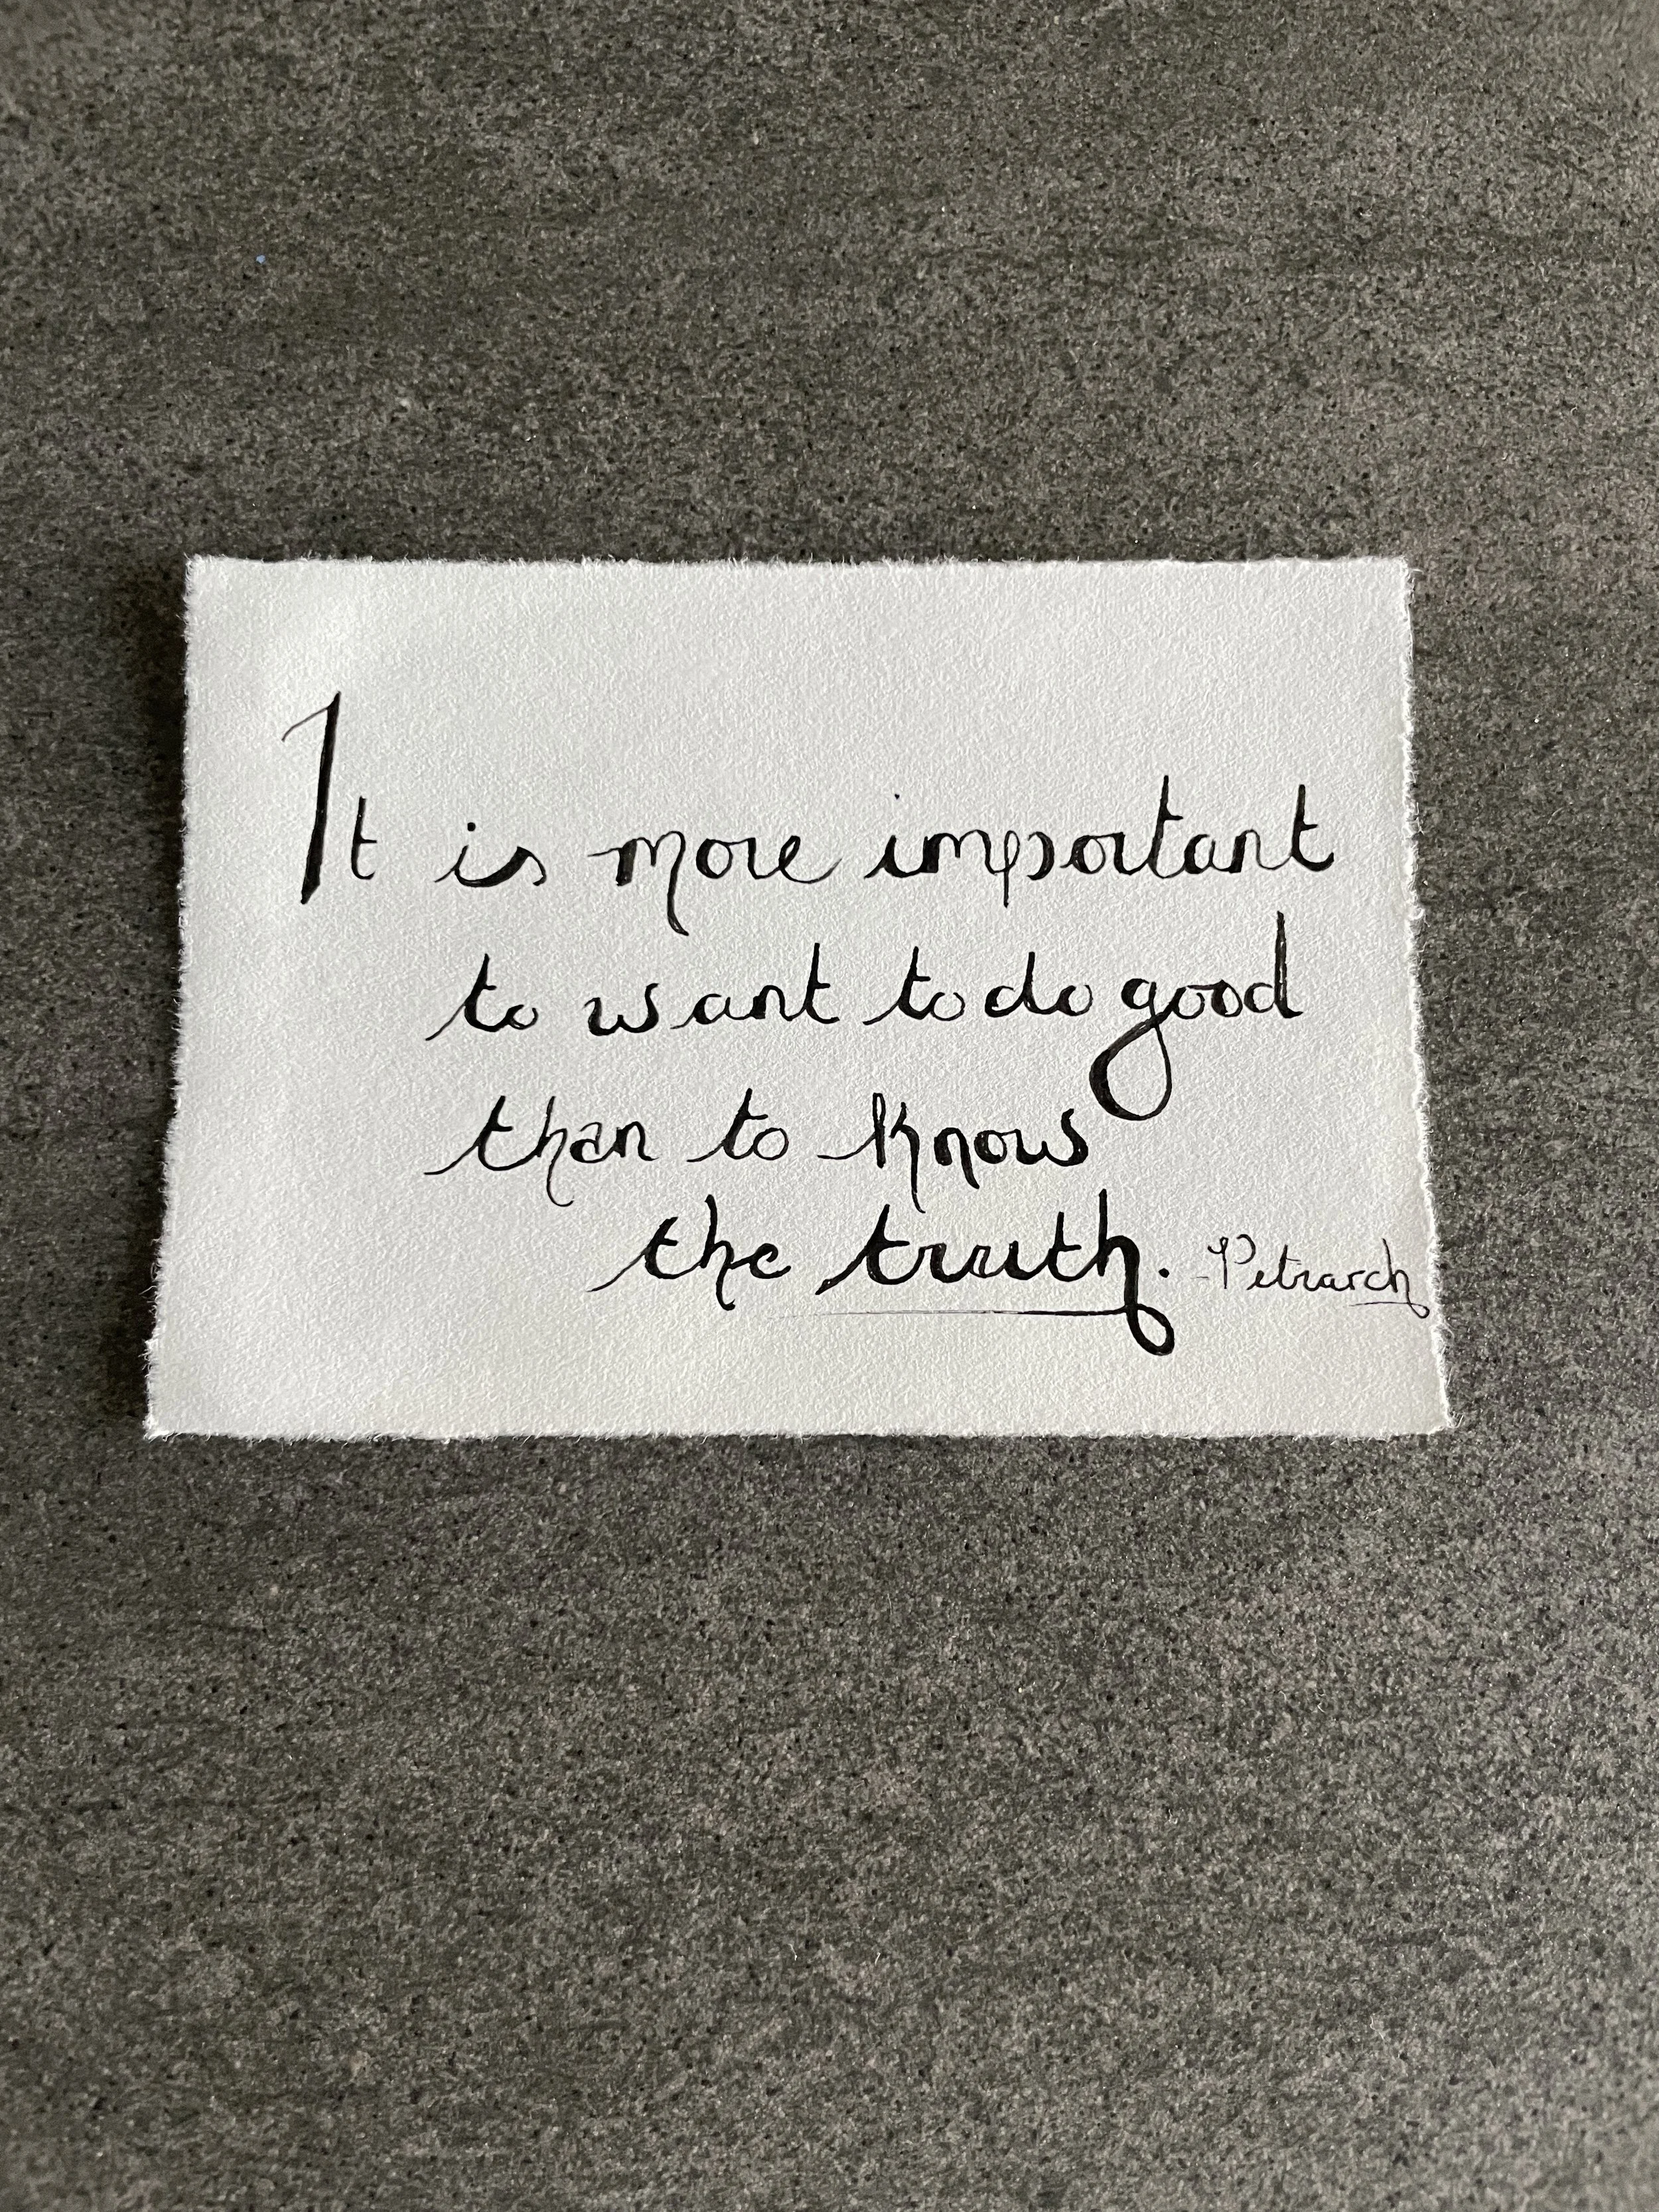 It is more important
to want to do good
than to know
the truth. -Petrarch